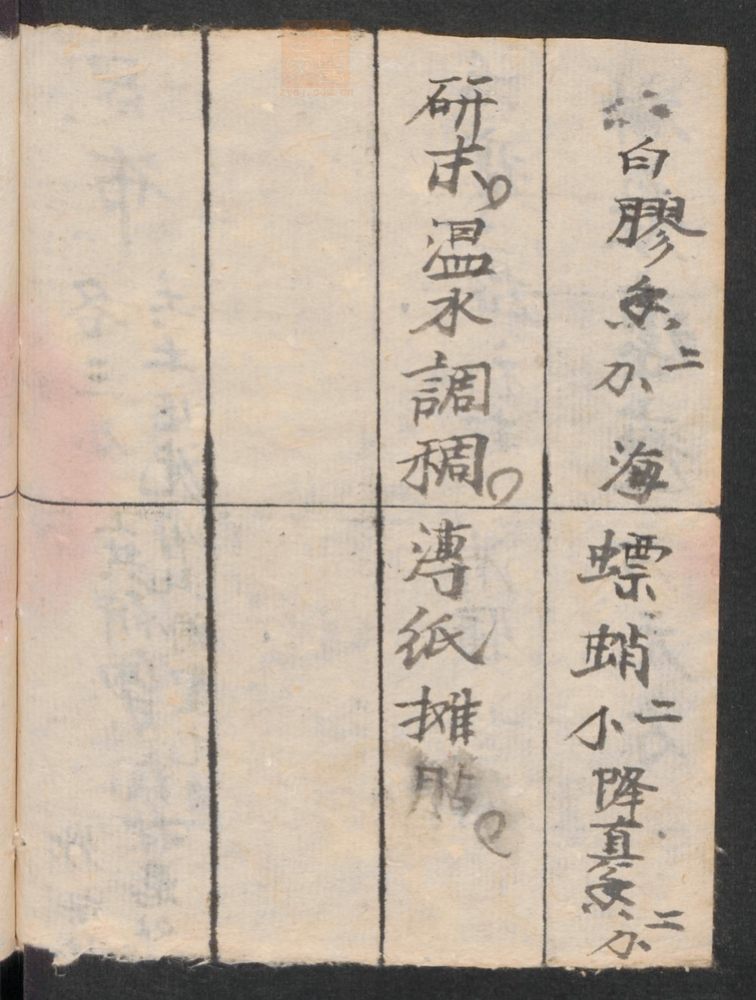 白膠香二分海螵蛸二分降真香二分
研末。温水調稠。薄紙攤貼。